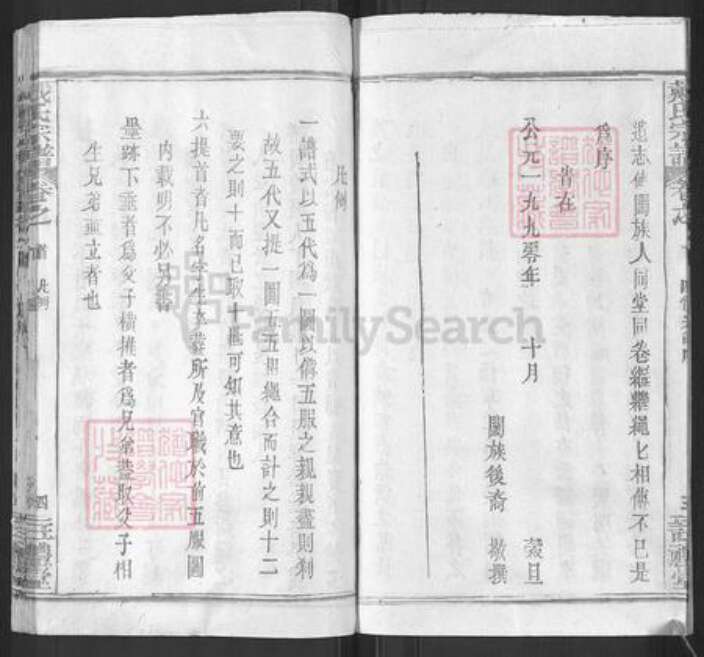 戴氏宗譜
遠志使闔族人同堂同卷繼繼繩繩相傳不已是
為序
旹在
公元一九九零年 十月 穀旦
闔族後裔 撰
三
三禮堂
凡例
一譜式以五代為一圖以倣五服之親親盡則剎
故五代又提一圖五五相繩合而計之則十二
要之則十而已取十世可知其意也
六提首者凡名字生卒葬所及官職於前五服圖
內載明不必另書
墨跡下垂者為父子橫推者為兄弟蓋取父子相
生兄弟並立者也
戴氏宗譜
卷之一
凡例
四
三禮堂
FamilySearch